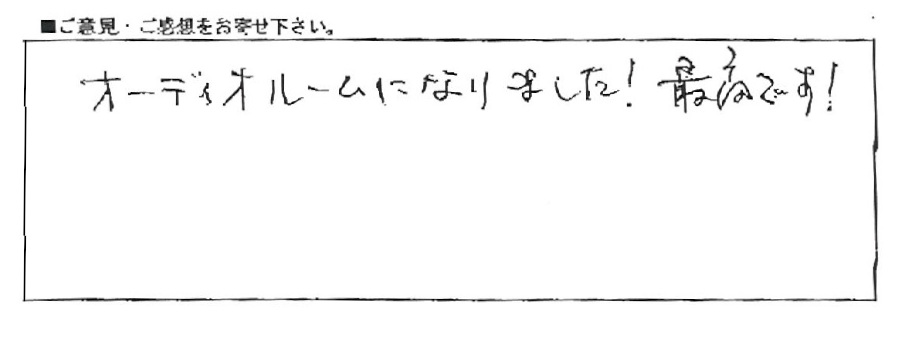 ■ご意見・ご感想をお寄せ下さい。
オーディオルームになりました！最高です！